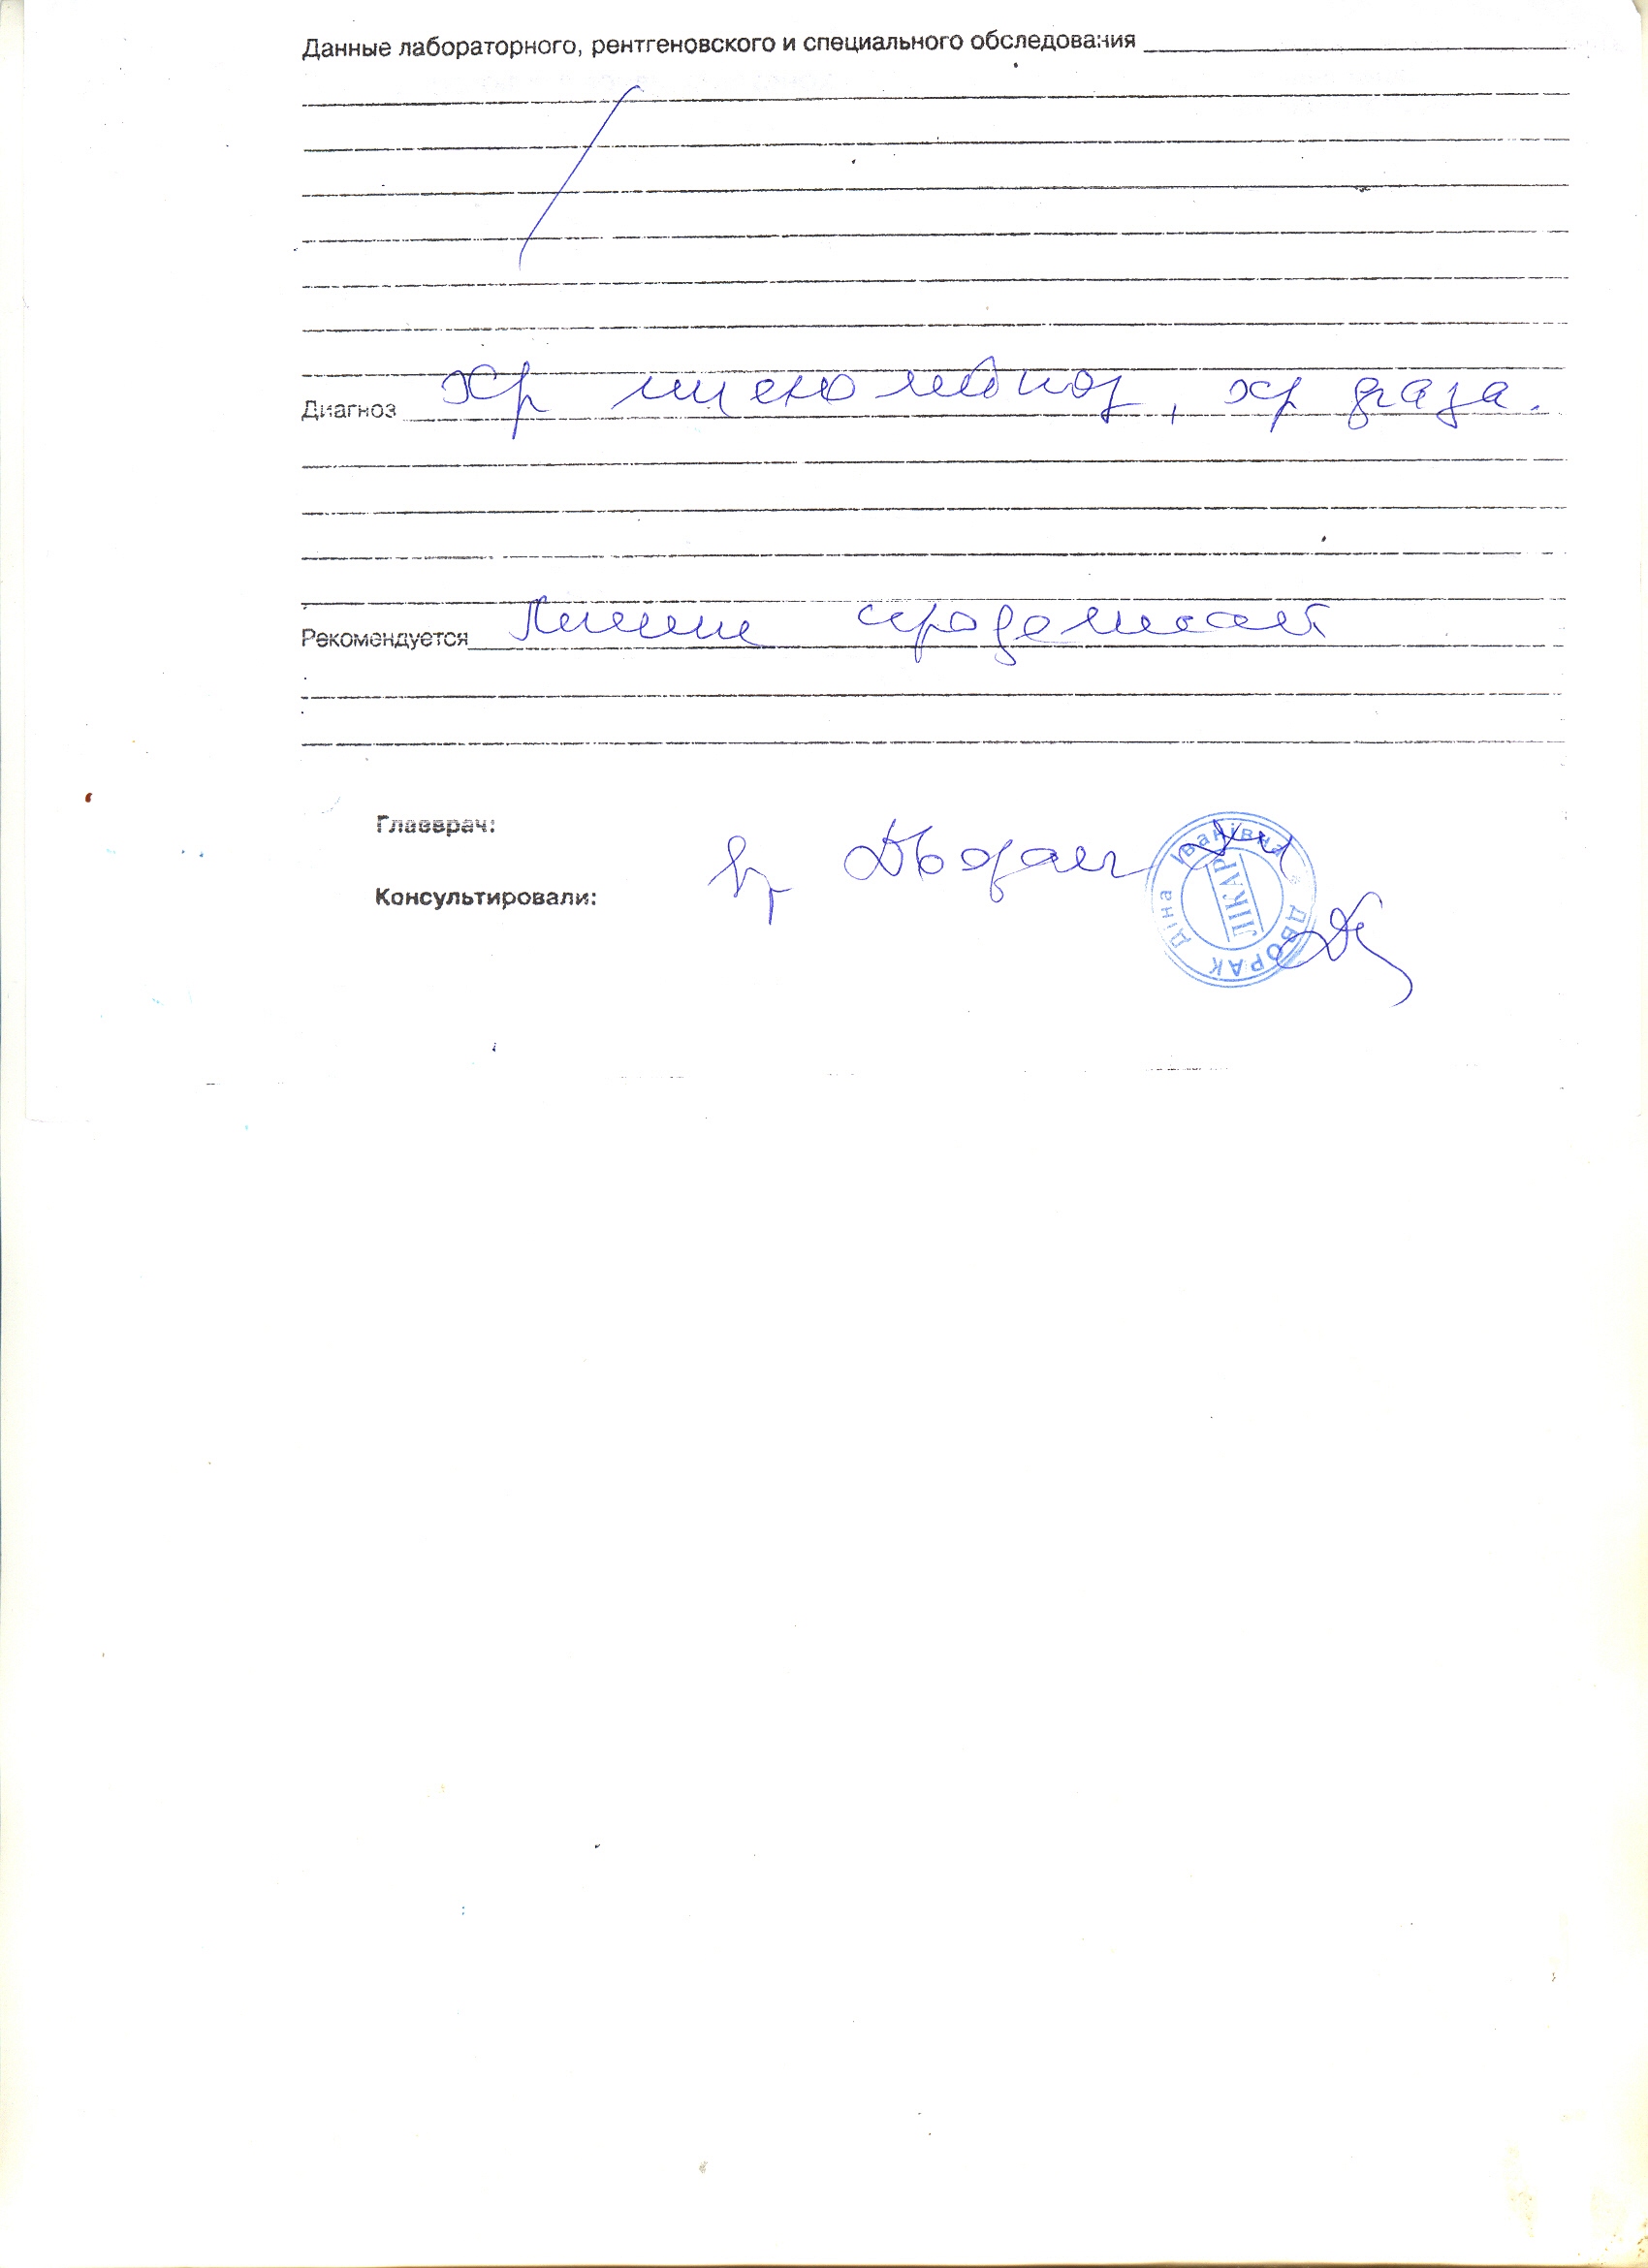 Данные лабораторного, рентгеновского и специального обследования
Диагноз Хр миелолейкоз, хр фаза.
Рекомендуется
Главврач:
Консультировали: Вр Дворак ДИ
Діна Іванівна ДВОРАК
ЛІКАР